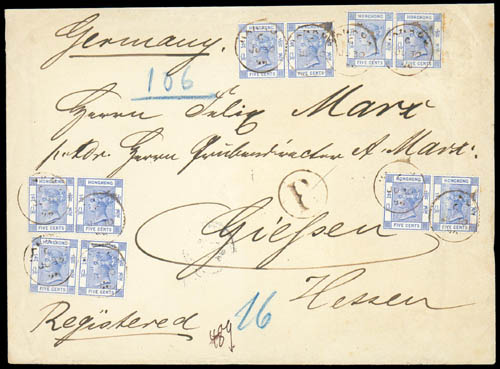 Germany.
HONGKONG HONGKONG HONGKONG HONGKONG
FIVE CENTS FIVE CENTS FIVE CENTS FIVE CENTS
106
Herrn Felix Marx
Herrn Grubendirector A. Marx.
HONGKONG HONGKONG
FIVE CENTS FIVE CENTS
HONGKONG HONGKONG
FIVE CENTS FIVE CENTS
Giessen
HONGKONG HONGKONG
FIVE CENTS FIVE CENTS
Hessen
Registered
489
16